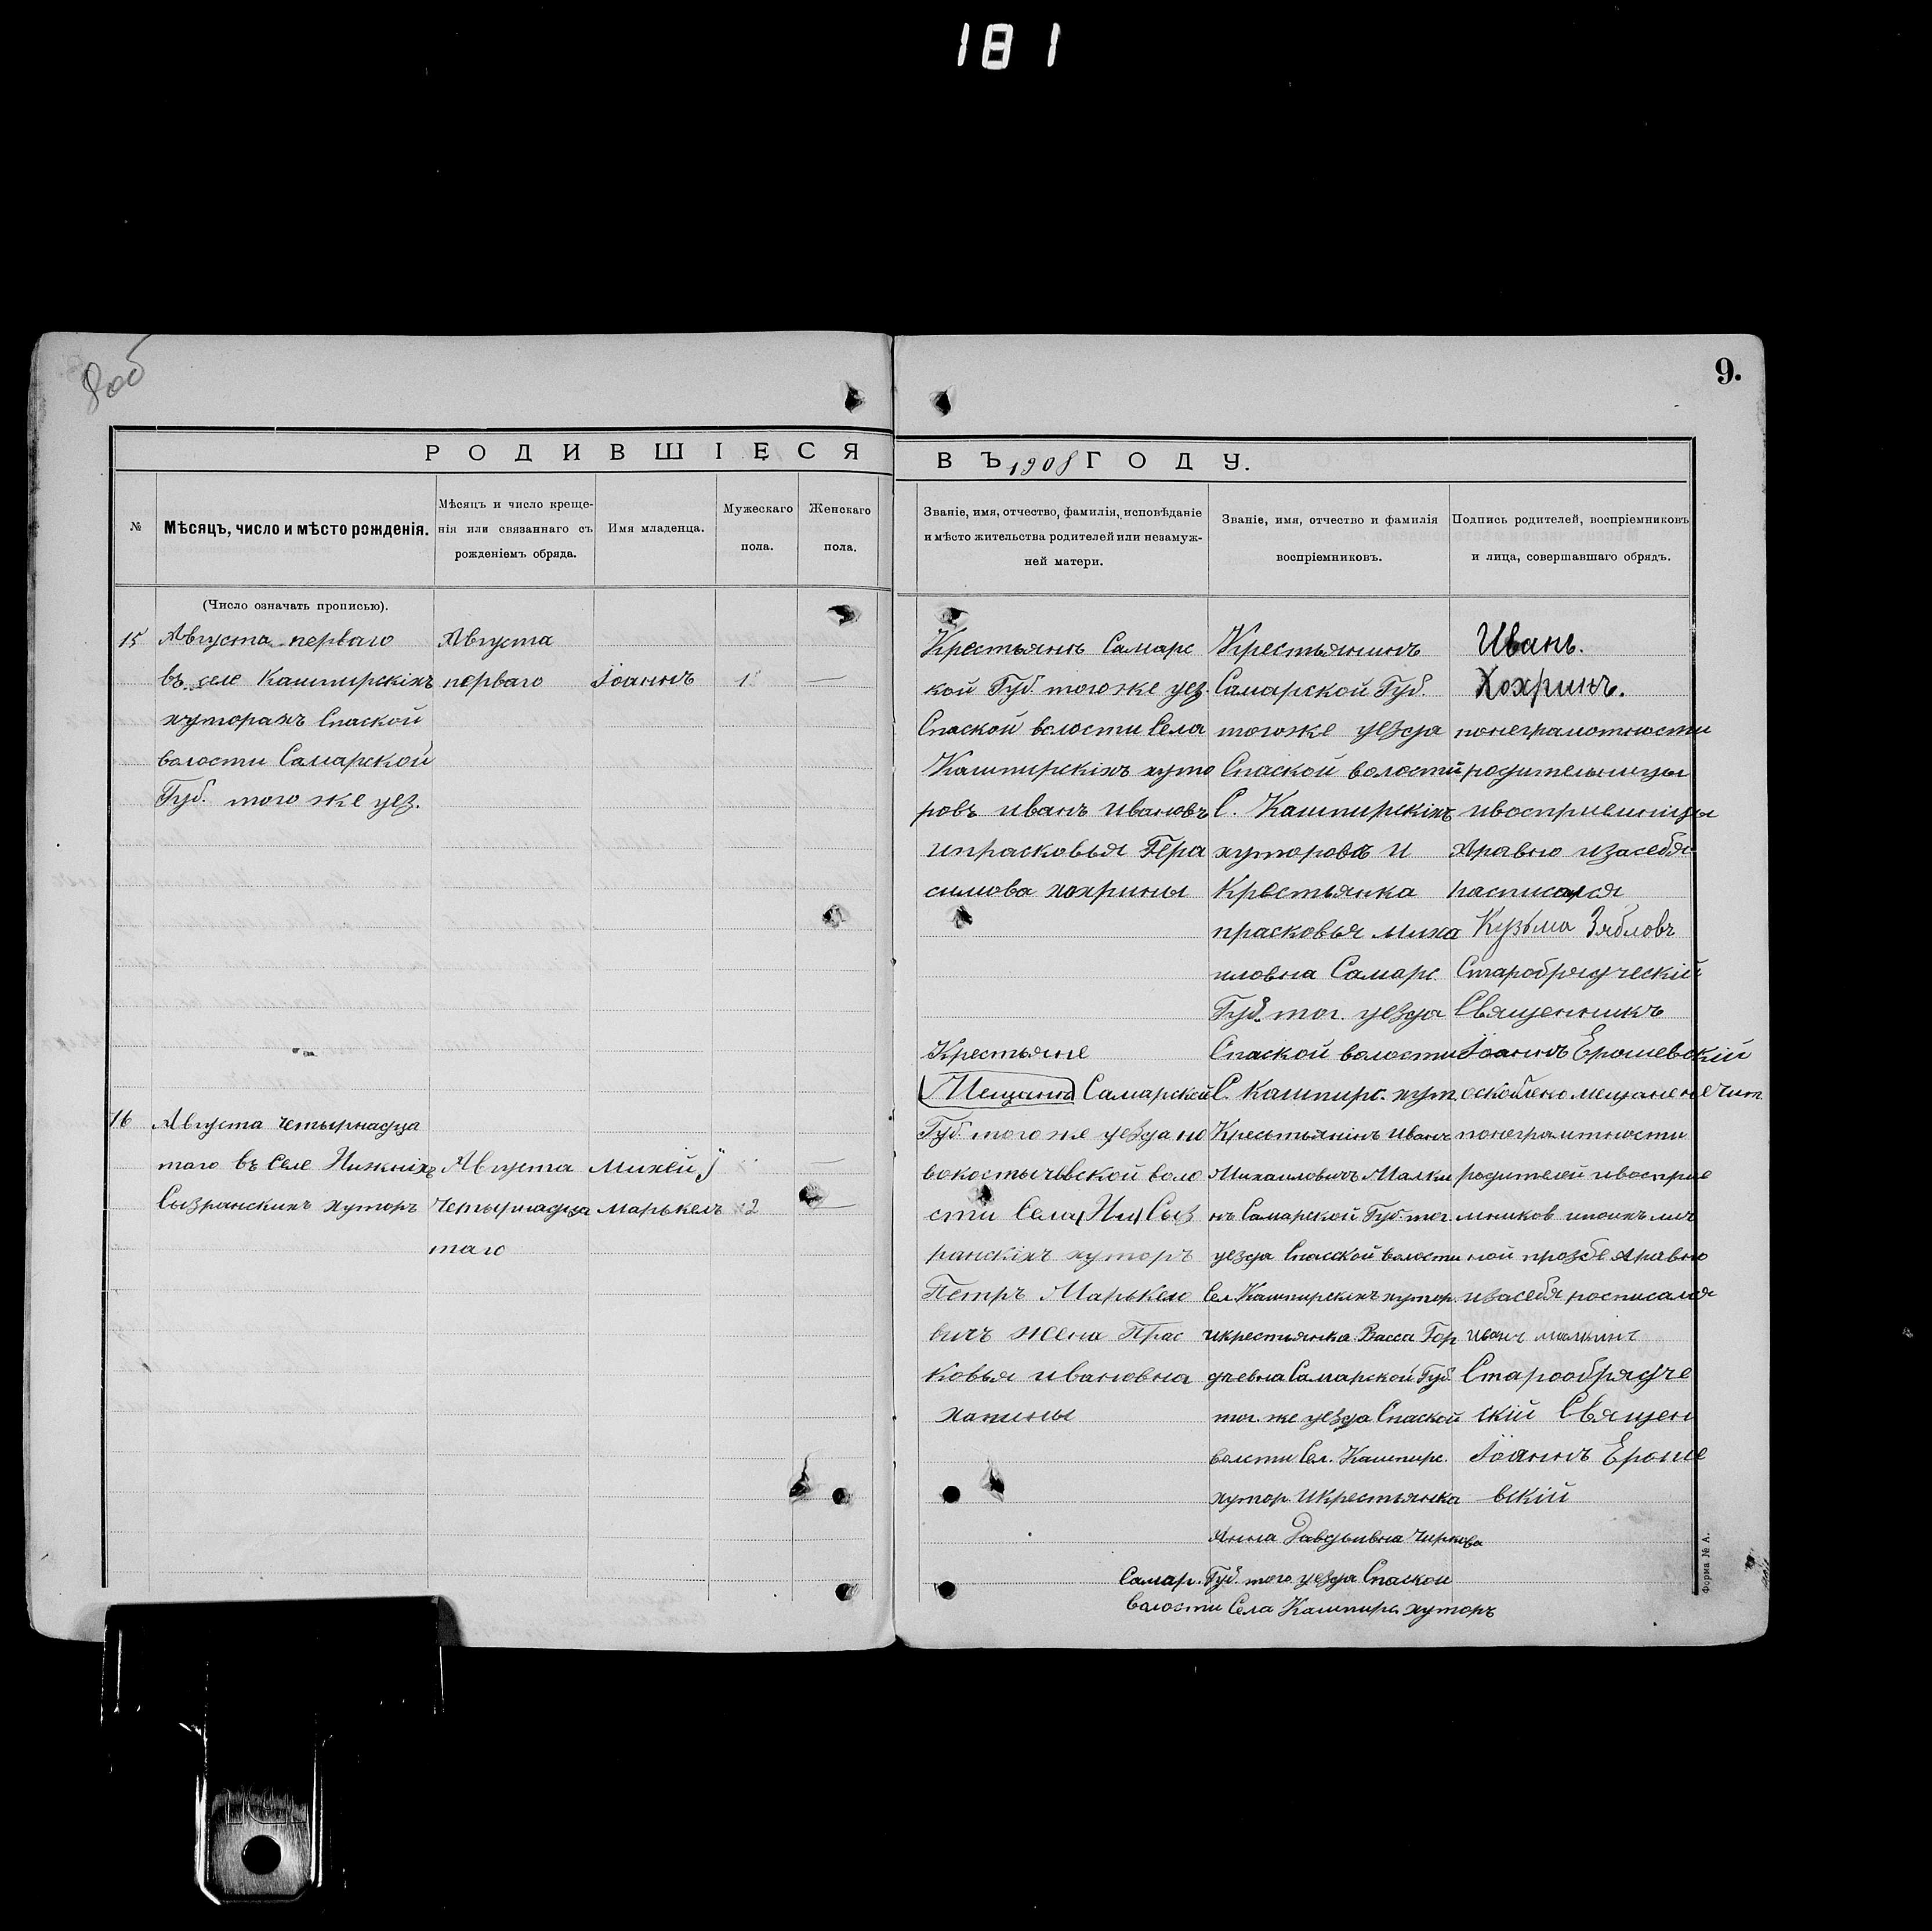 181
8об
9.
РОДИВШІЕСЯ
ВЪ 1908 ГОДУ.
№
Мѣсяцъ, число и мѣсто рожденія.
Мѣсяцъ и число креще-
нія или связаннаго съ
рожденіемъ обряда.
Имя младенца.
Мужескаго
пола.
Женскаго
пола.
Званіе, имя, отчество, фамилія, исповѣданіе
и мѣсто жительства родителей или незамуж-
ней матери.
Званіе, имя, отчество и фамилія
воспріемниковъ.
Подпись родителей, воспріемниковъ
и лица, совершавшаго обрядъ.
(Число означать прописью).
15
Августа перваго
въ селе Кашпирскіхъ
хуторахъ Спаской
волости Самарской
Губ. того же уез.
Августа
перваго
Іоаннъ
1
—
Крестьянъ Самарс
кой Губ. того же уез.
Спаской волости Села
Кашпирскіхъ хуто
ровъ иванъ ивановъ
ипрасковья Гера
симова хохрины
Крестьянинъ
Самарской Губ.
тогоже уезда
Спаской волостй
С. Кашпирскіхъ
хуторовъ И
Крестьянка
прасковья миха
иловна Самарс.
Губ. тог. уезда
Спаской волости
С. Кашпирс. хут.
Иванъ.
Хохринъ.
понеграмотности
родительницы
ивосприемніцы
Аравно изасебя
расписался
Кузьма Зябловъ
Старобрядческій
Священникъ
Іоаннъ Ерошевскій
оскоблено мещане не чит
16
Августа четырнадца
таго въ Селе Нижніхъ
Сызранскихъ хуторъ
Августа
четырнадца
таго
Михей
марькелъ
2
—
—
Крестьяне
Мещанъ Самарской
Губ. того же уезда но
вокостычевской воло
сти Села Ни Сыз
ранскіхъ хуторъ
Петръ Марькело
вичъ жена Прас
ковья ивановна
хапины
Крестьянінъ иванъ
Михаиловичъ Малки
нъ Самарской Губ. тог.
уезда Спасской волости
Сел. Кашпирскихъ хутор.
икрестьянка Васса Гор
деевна Самарской Губ.
тог. же уезда Спаской
волсти Сел. Кашпирс.
хутор. Икрестьянка
Анна Давыдивна Чиркова
Самар. Губ. того уезда Спаской
волости Села Кашпирс. хуторъ
понеграмтности
родителей ивосприе
мников ипоихъ лич
ной прозбе Аравно
изасебя росписался
иванъ малкинъ
Старообрядче
скій Священ
Іоаннъ Ероше
вскій
Форма № А.